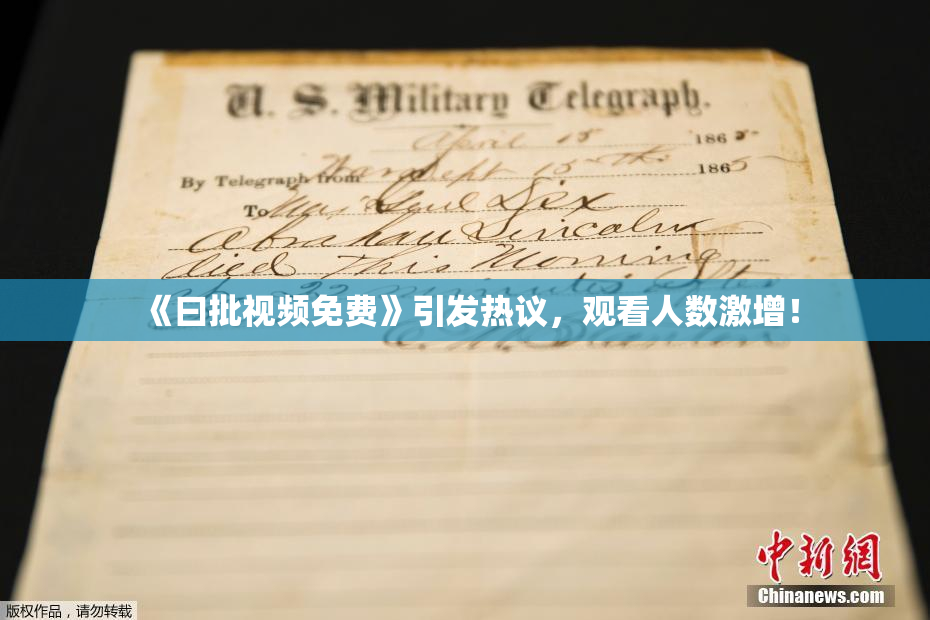 U. S. Military Telegraph.
April 15 1865
By Telegraph from War Dept 15th 1865
To Maj Genl Dix
Abraham Lincoln
died This Morning
22 minutes after
《曰批视频免费》引发热议，观看人数激增！
E. M. Stanton
中新网
Chinanews.com
版权作品，请勿转载